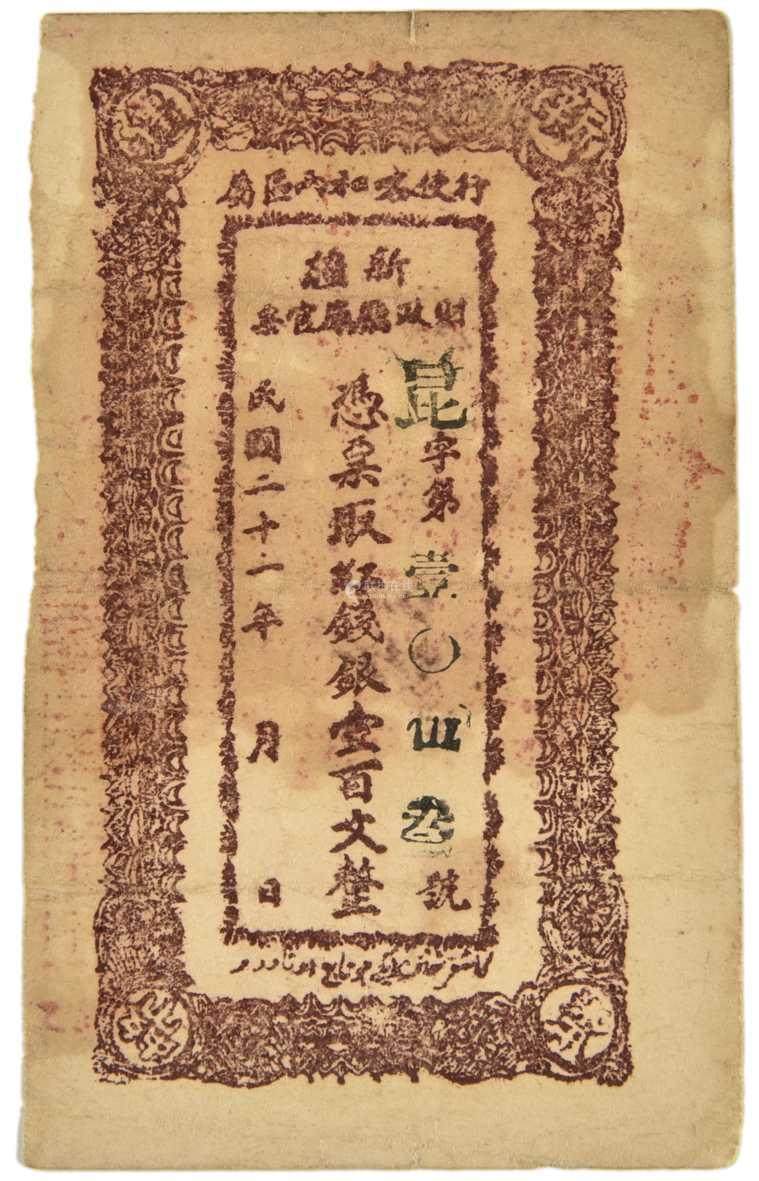 行使喀和两區屬
新疆
財政廳庫官票
昆字第壹〇四叁號
憑票取紅錢銀壹百文整
民國二十一年 月 日